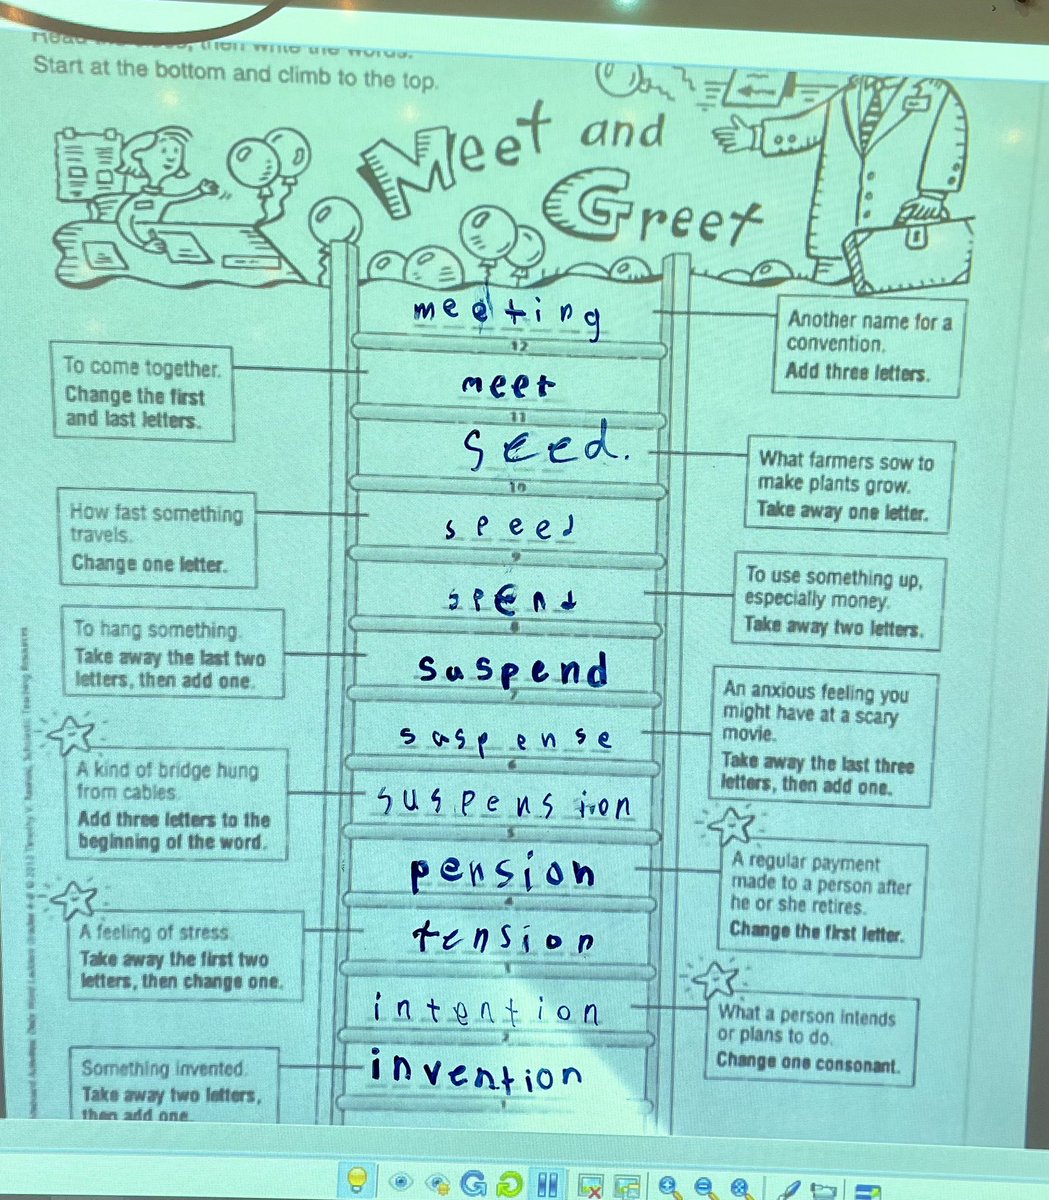 then write the words.
Start at the bottom and climb to the top.
Meet and
Greet
meeting
12
Another name for a
convention.
Add three letters.
To come together.
Change the first
and last letters.
meet
11
seed.
10
What farmers sow to
make plants grow.
Take away one letter.
How fast something
travels.
Change one letter.
speed
9
spend
8
To use something up,
especially money.
Take away two letters.
To hang something.
Take away the last two
letters, then add one.
suspend
7
suspense
6
An anxious feeling you
might have at a scary
movie.
Take away the last three
letters, then add one.
A kind of bridge hung
from cables.
Add three letters to the
beginning of the word.
suspension
5
pension
4
A regular payment
made to a person after
he or she retires.
Change the first letter.
A feeling of stress.
Take away the first two
letters, then change one.
tension
3
intention
2
What a person intends
or plans to do.
Change one consonant.
Something invented.
Take away two letters,
then add one.
invention
1